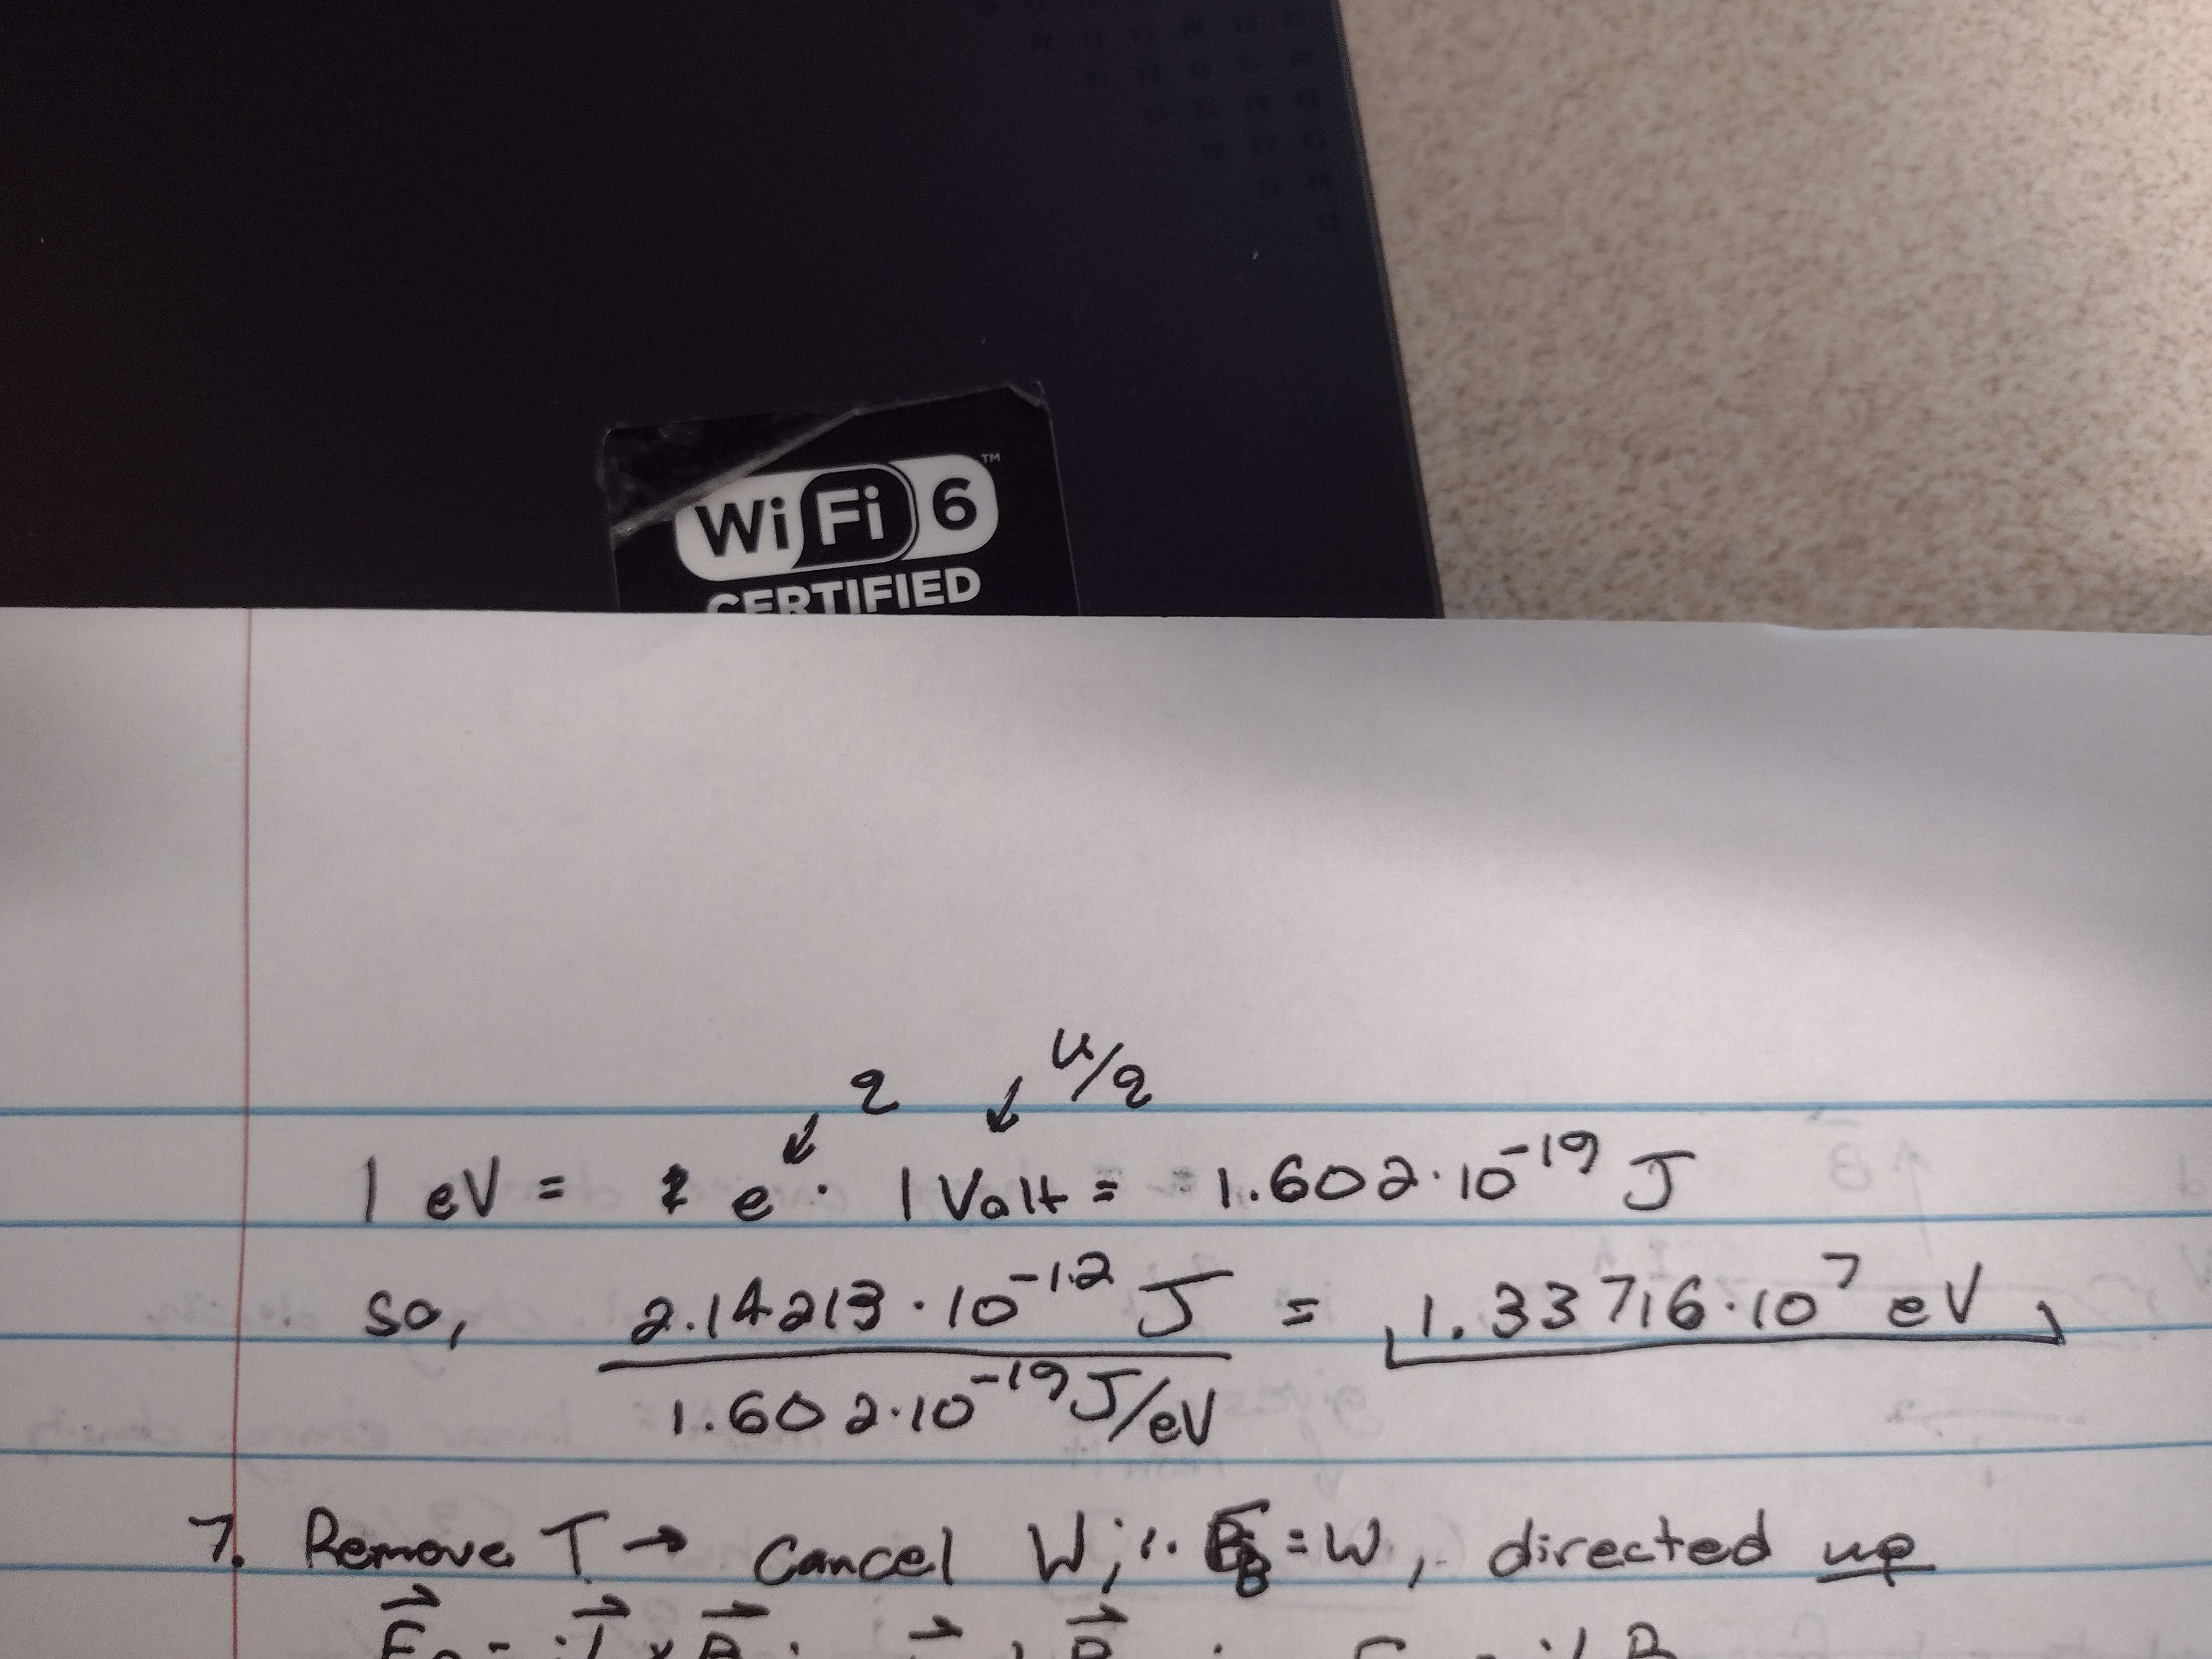 WiFi 6™
CERTIFIED
q u/q
1 eV = e · 1 Volt = 1.602·10⁻¹⁹ J
so, 2.14213·10⁻¹² J = 1.33716·10⁷ eV
1.602·10⁻¹⁹ J/eV
7. Remove T → Cancel W; ∴ F_B = W, directed up